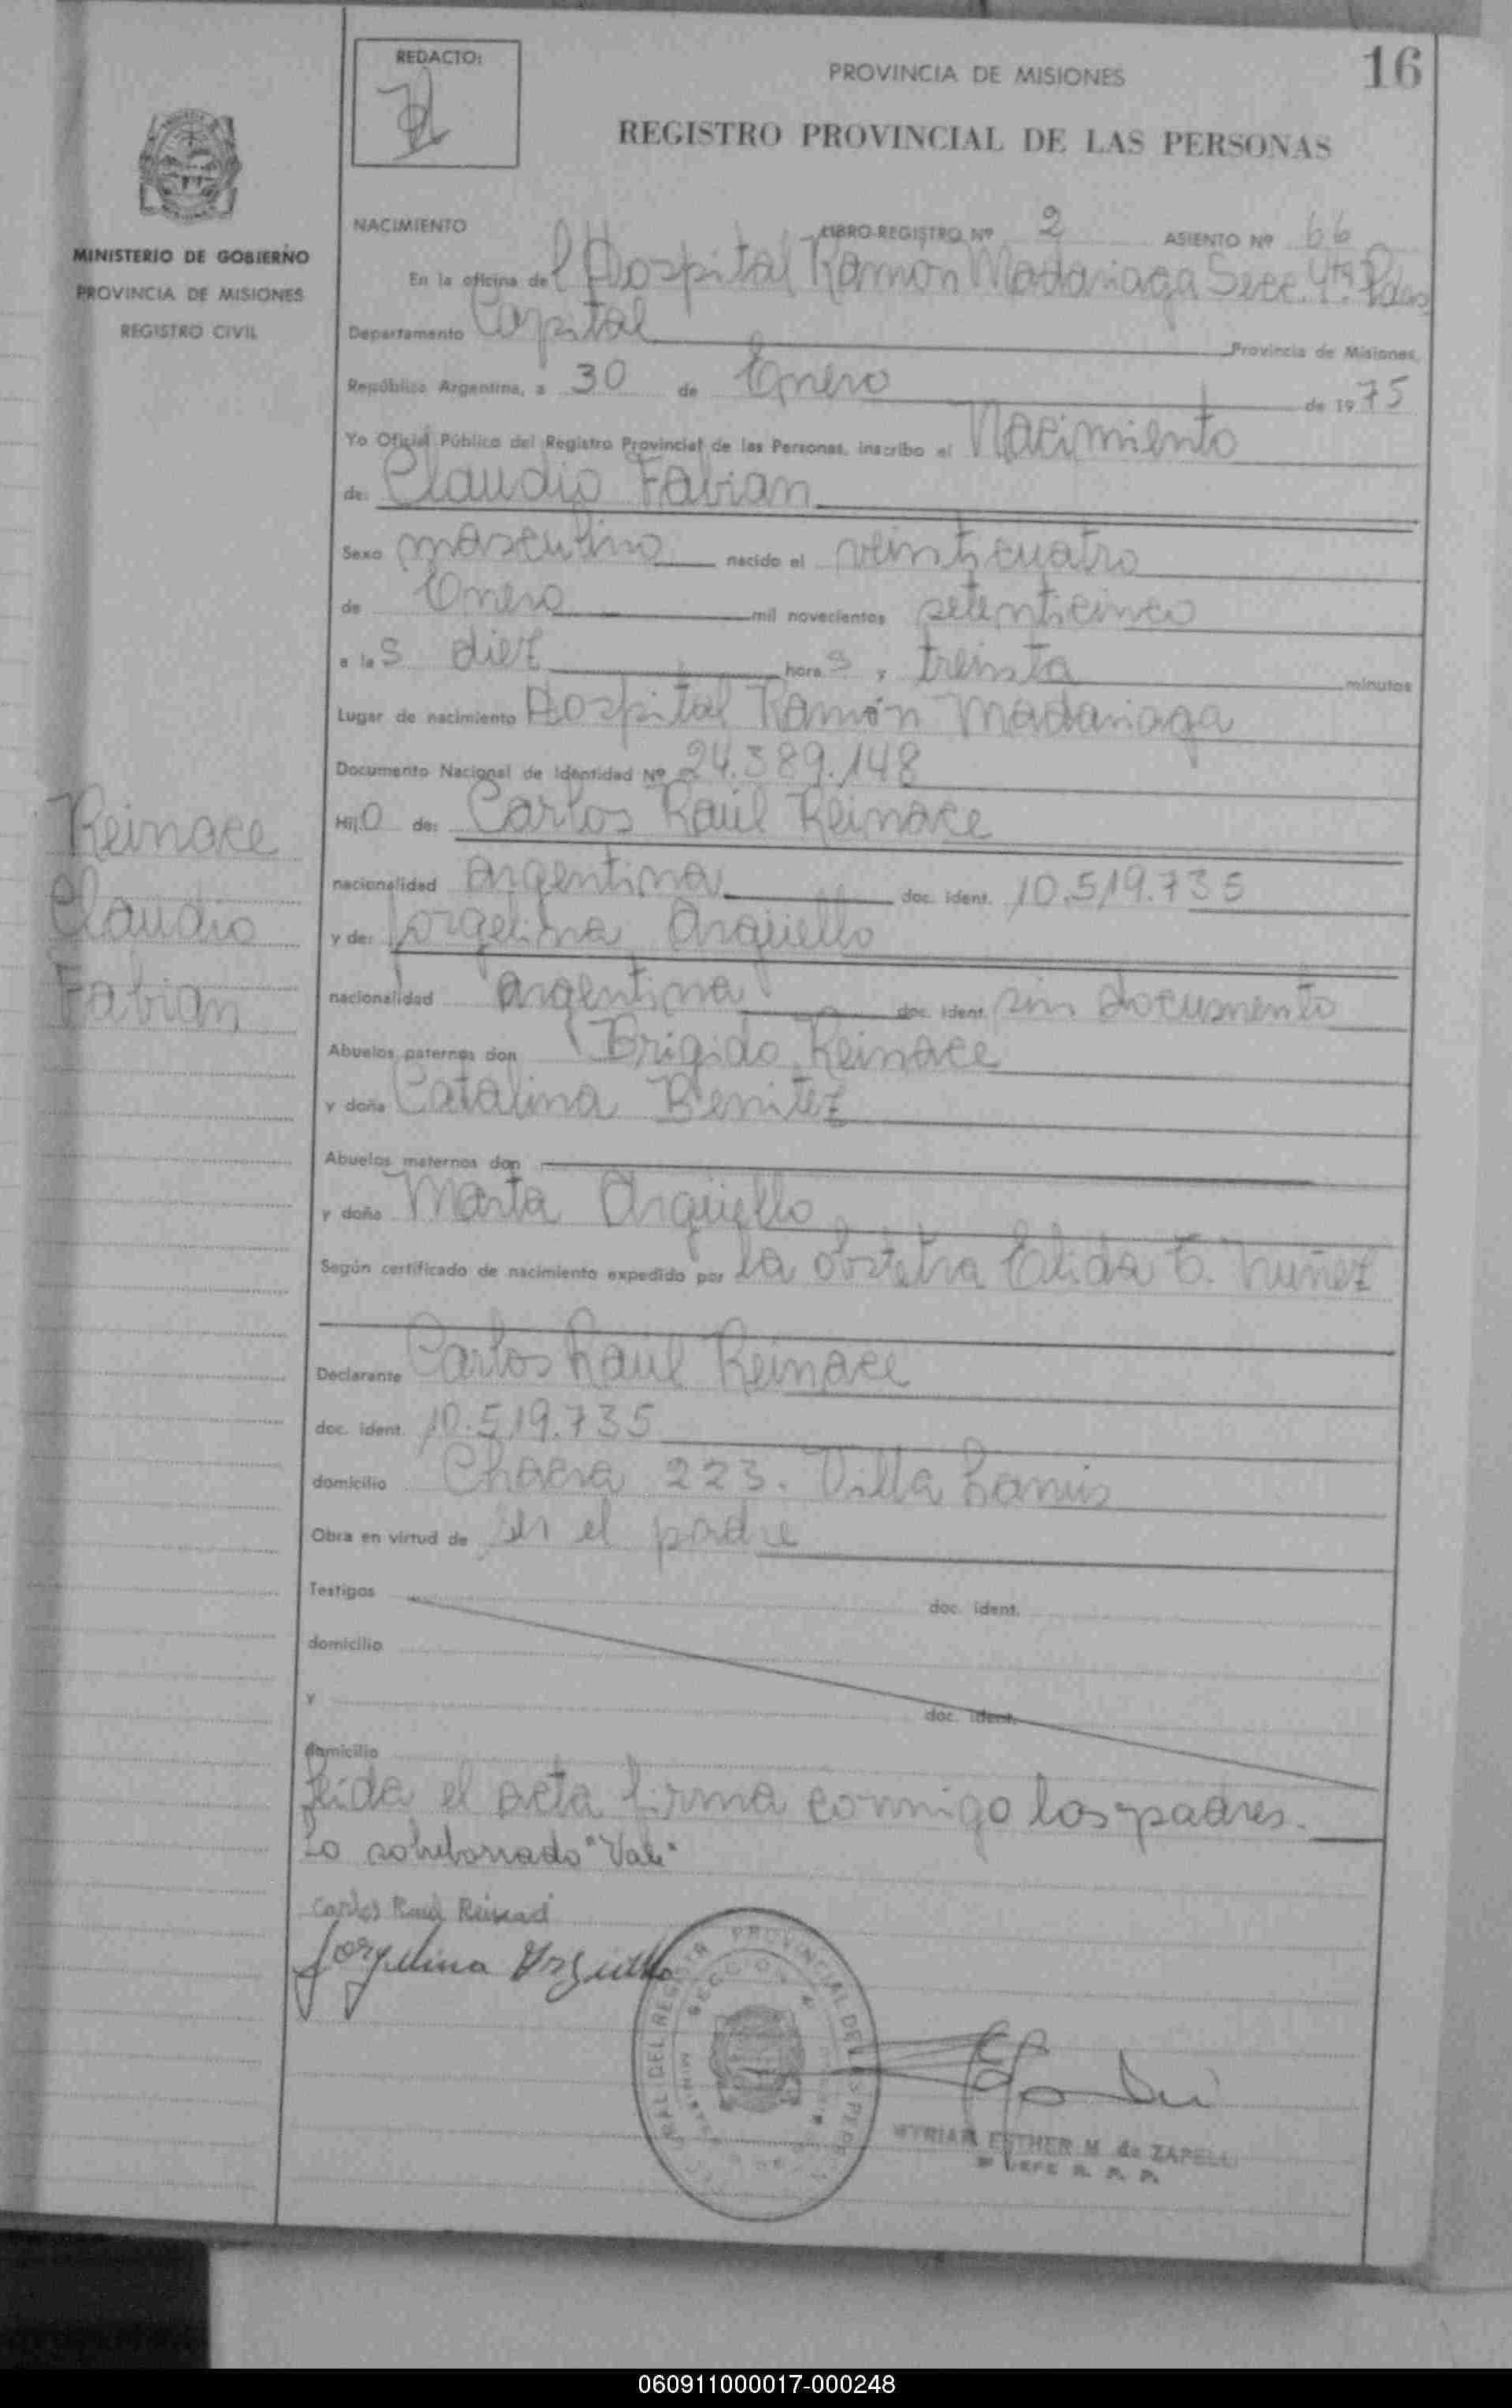 REDACTO:
16
PROVINCIA DE MISIONES
REGISTRO PROVINCIAL DE LAS PERSONAS
MINISTERIO DE GOBIERNO
PROVINCIA DE MISIONES
REGISTRO CIVIL
NACIMIENTO LIBRO-REGISTRO Nº 2 ASIENTO Nº 66
En la oficina del Hospital Ramón Madariaga Secc. 4ta. Pdas
Departamento Capital Provincia de Misiones,
República Argentina, a 30 de Enero de 1975
Yo Oficial Público del Registro Provincial de las Personas, inscribo el Nacimiento
de: Claudio Fabian
Sexo masculino nacido el veinticuatro
de Enero mil novecientos setenticinco
a las diez horas y treinta minutos
Lugar de nacimiento Hospital Ramón Madariaga
Documento Nacional de Identidad Nº 24.389.148
Hijo de: Carlos Raúl Reinace
nacionalidad argentina doc. ident. 10.519.735
y de: Jorgelina Argüello
nacionalidad argentina doc. ident. sin documento
Abuelos paternos don Brigido Reinace
y doña Catalina Benitez
Abuelos maternos don
y doña Marta Argüello
Según certificado de nacimiento expedido por la obstetra Elida E. Nuñez
Declarante Carlos Raúl Reinace
doc. ident. 10.519.735
domicilio Chacra 223. Villa Lanús
Obra en virtud de ser el padre
Testigos doc. ident.
domicilio
y doc. ident.
domicilio
Leida el acta firma conmigo los padres.
Lo sobreborrado "Vale"
Carlos Raúl
Jorgelina Arguello
Reinace
Claudio
Fabian
REGISTRO PROVINCIAL DE LAS PERSONAS
SECCION 4
MYRIAM ESTHER M. de ZAPELLI
JEFE R. P. P.
060911000017-000248